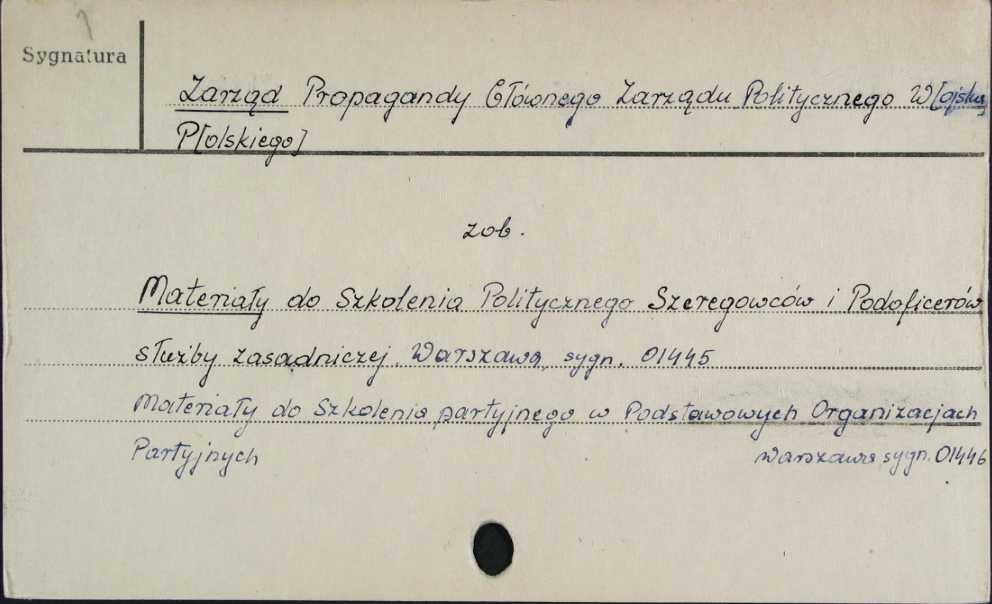 Sygnatura
Zarząd Propagandy Głównego Zarządu Politycznego W[ojska
P[olskiego]
zob.
Materiały do Szkolenia Politycznego Szeregowców i Podoficerów
służby zasadniczej. Warszawa, sygn. 01445
Materiały do Szkolenia partyjnego w Podstawowych Organizacjach
Partyjnych Warszawa sygn. 01446